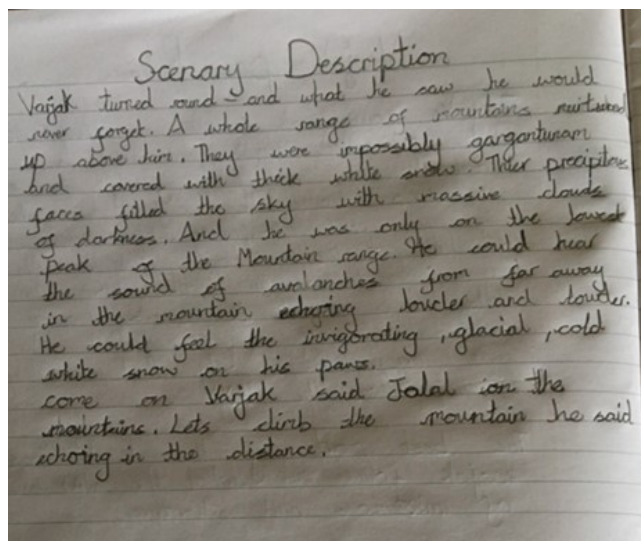 Scenary Description
Varjak turned round - and what he saw he would
never forget. A whole range of mountains
up above him. They were impossibly gargantunam
and covered with thick white snow. Thier precipitous
faces filled the sky with massive clouds
of darkness. And he was only on the lowest
peak of the Mountain range. He could hear
the sound of avalanches from far away
in the mountain echoring louder and louder.
He could feel the invigorating , glacial , cold
white snow on his paws.
come on Varjak said Jalal ion the
mountains. Lets climb the mountain he said
echoing in the distance.